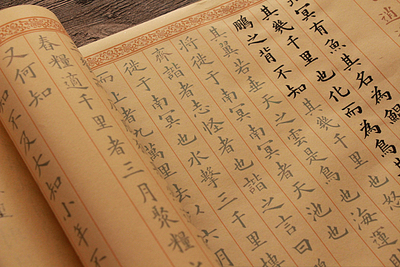 逍
冥有魚其名為鯤
其幾千里也化而為鳥其
鵬之背不知其幾千里也怒
其翼若垂天之雲是鳥也海運
將徙于南冥南冥者天池也
齊諧者志怪者也諧之言曰
徙于南冥也水擊三千里
而上者九萬里去以六月
春糧適千里者三月聚糧之
又何知
知不及大知小年不